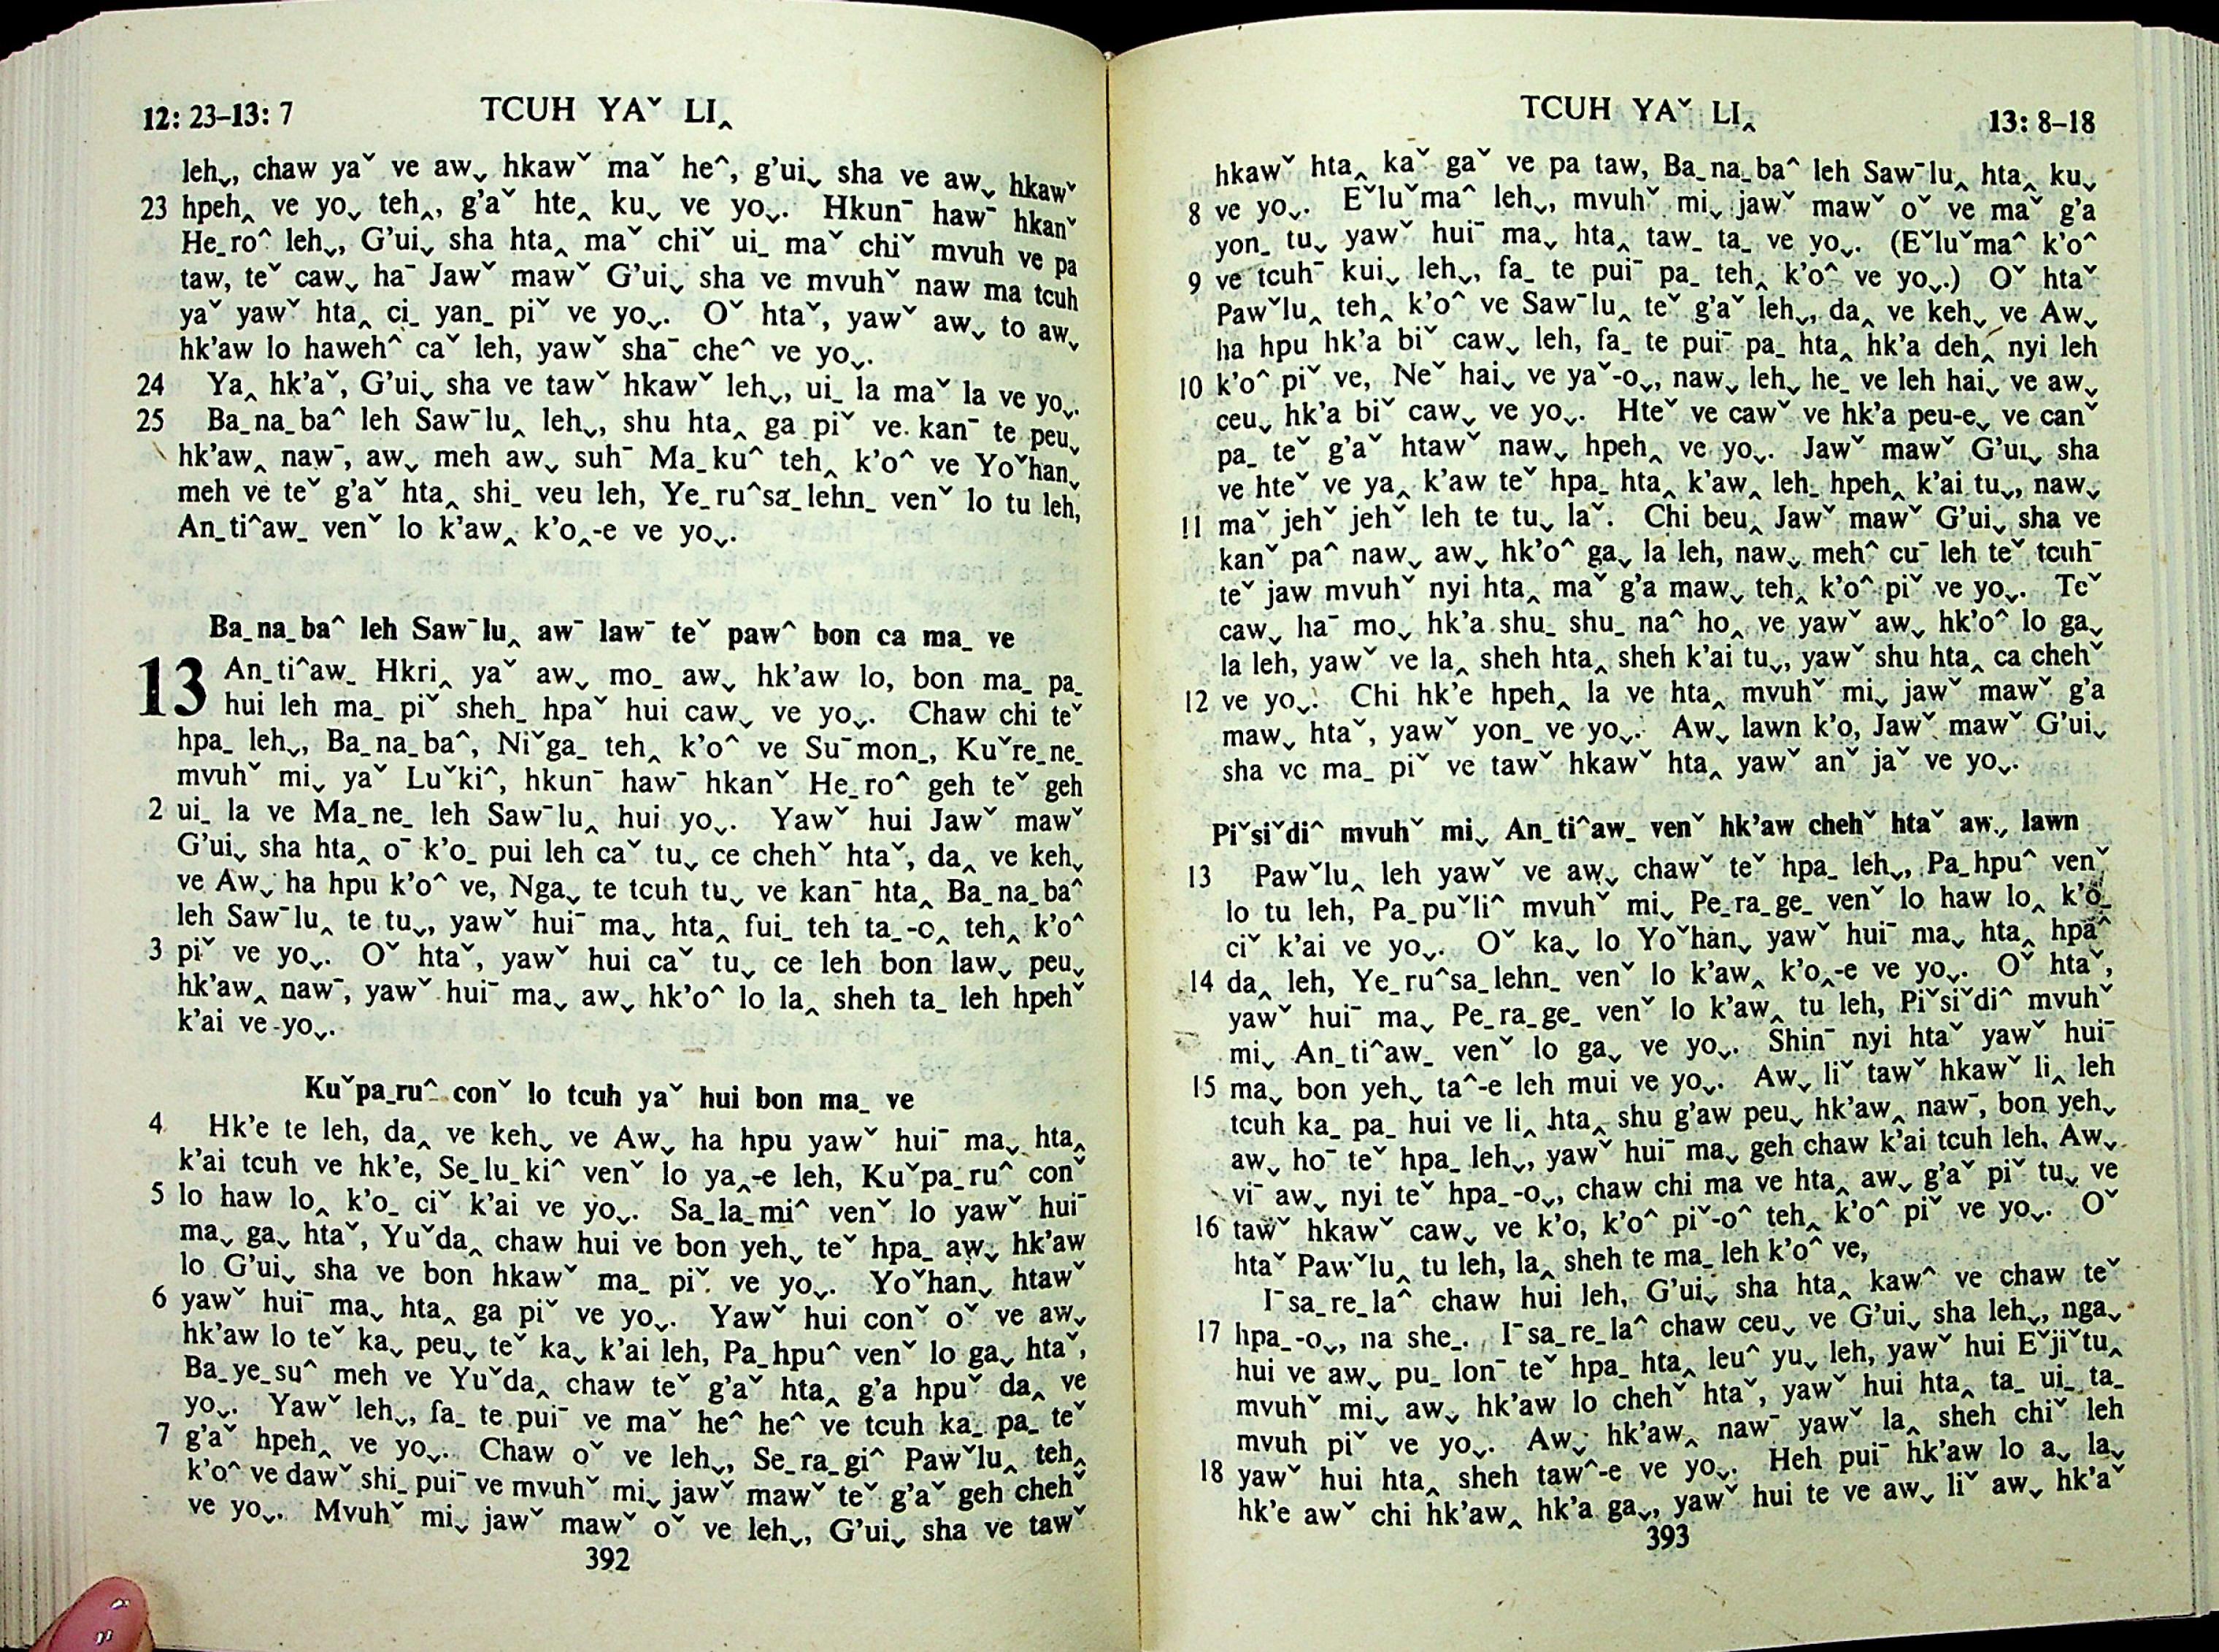 12: 23–13: 7 TCUH YAˇ LI‸
lehˬ, chaw yaˇ ve awˬ hkawˇ maˇ heˆ, g’uiˬ sha ve awˬ hkawˇ
23 hpeh‸ ve yoˬ teh‸, g’aˇ hte‸ kuˬ ve yoˬ. Hkunˉ hawˉ hkanˇ
He_roˆ lehˬ, G’uiˬ sha hta‸ maˇ chiˇ ui_ maˇ chiˇ mvuh ve pa
taw, teˇ cawˬ haˉ Jawˇ mawˇ G’uiˬ sha ve mvuhˇ naw ma tcuh
yaˇ yawˇ hta‸ ci_ yan_ piˇ ve yoˬ. Oˇ htaˇ, yawˇ awˬ to awˬ
hk’aw lo hawehˆ caˇ leh, yawˇ shaˉ cheˆ ve yoˬ.
24 Ya‸ hk’aˇ, G’uiˬ sha ve tawˇ hkawˇ lehˬ, ui_ la maˇ la ve yoˬ.
25 Ba_na_baˆ leh Sawˉlu‸ lehˬ, shu hta‸ ga piˇ ve kanˉ te peuˬ
hk’aw‸ nawˉ, awˬ meh awˬ suhˉ Ma_kuˆ teh‸ k’oˆ ve Yoˇhanˬ
meh ve teˇ g’aˇ hta‸ shi_ veu leh, Ye_ruˆsa_lehn_ venˇ lo tu leh,
An_tiˆaw_ venˇ lo k’aw‸ k’o‸-e ve yoˬ.
Ba_na_baˆ leh Sawˉlu‸ awˉ lawˉ teˇ pawˆ bon ca ma_ ve
13 An_tiˆaw_ Hkri‸ yaˇ awˬ mo_ awˬ hk’aw lo, bon ma_ pa_
hui leh ma_ piˇ sheh_ hpaˇ hui cawˬ ve yoˬ. Chaw chi teˇ
hpa_ lehˬ, Ba_na_baˆ, Niˇga_ teh‸ k’oˆ ve Suˉmon_, Kuˇre_ne_
mvuhˇ miˬ yaˇ Luˇkiˆ, hkunˉ hawˉ hkanˇ He_roˆ geh teˇ geh
2 ui_ la ve Ma_ne_ leh Sawˉlu‸ hui yoˬ. Yawˇ hui Jawˇ mawˇ
G’uiˬ sha hta‸ oˉ k’o_ pui leh caˇ tuˬ ce chehˇ htaˇ, da‸ ve kehˬ
ve Awˬ ha hpu k’oˆ ve, Ngaˬ te tcuh tuˬ ve kanˉ hta‸ Ba_na_baˆ
leh Sawˉlu‸ te tuˬ, yawˇ huiˉ maˬ hta‸ fui_ teh ta_-o‸ teh‸ k’oˆ
3 piˇ ve yoˬ. Oˇ htaˇ, yawˇ hui caˇ tuˬ ce leh bon lawˬ peuˬ
hk’aw‸ nawˉ, yawˇ huiˉ maˬ awˬ hk’oˆ lo la‸ sheh ta_ leh hpehˇ
k’ai ve yoˬ.
Kuˇpa_ruˆ conˇ lo tcuh yaˇ hui bon ma_ ve
4 Hk’e te leh, da‸ ve kehˬ ve Awˬ ha hpu yawˇ huiˉ maˬ hta‸
k’ai tcuh ve hk’e, Se_lu_kiˆ venˇ lo ya‸-e leh, Kuˇpa_ruˆ conˇ
5 lo haw lo‸ k’o_ ciˇ k’ai ve yoˬ. Sa_la_miˆ venˇ lo yawˇ huiˉ
maˬ gaˬ htaˇ, Yuˇda‸ chaw hui ve bon yehˬ teˇ hpa_ awˬ hk’aw
lo G’uiˬ sha ve bon hkawˇ ma_ piˇ ve yoˬ. Yoˇhanˬ htawˇ
6 yawˇ huiˉ maˬ hta‸ ga piˇ ve yoˬ. Yawˇ hui conˇ oˇ ve awˬ
hk’aw lo teˇ kaˬ peuˬ teˇ kaˬ k’ai leh, Pa_hpuˆ venˇ lo gaˬ htaˇ,
Ba_ye_suˆ meh ve Yuˇda‸ chaw teˇ g’aˇ hta‸ g’a hpuˇ da‸ ve
yoˬ. Yawˇ lehˬ, fa_ te puiˉ ve maˇ heˆ heˆ ve tcuh ka_ pa_ teˇ
7 g’aˇ hpeh‸ ve yoˬ. Chaw oˇ ve lehˬ, Se_ra_giˆ Pawˇlu‸ teh‸
k’oˆ ve dawˇ shi_ puiˉ ve mvuhˇ miˬ jawˇ mawˇ teˇ g’aˇ geh chehˇ
ve yoˬ. Mvuhˇ miˬ jawˇ mawˇ oˇ ve lehˬ, G’uiˬ sha ve tawˇ
392
TCUH YAˇ LI‸ 13: 8–18
hkawˇ hta‸ kaˇ gaˇ ve pa taw, Ba_na_baˆ leh Sawˉlu‸ hta‸ kuˬ
8 ve yoˬ. Eˇluˇmaˆ lehˬ, mvuhˇ miˬ jawˇ mawˇ oˇ ve maˇ g’a
yon_ tuˬ yawˇ huiˉ maˬ hta‸ taw_ ta_ ve yoˬ. (Eˇluˇmaˆ k’oˆ
9 ve tcuhˉ kuiˬ lehˬ, fa_ te puiˉ pa_ teh‸ k’oˆ ve yoˬ.) Oˇ htaˇ
Pawˇlu‸ teh‸ k’oˆ ve Sawˉlu‸ teˇ g’aˇ lehˬ, da‸ ve kehˬ ve Awˬ
ha hpu hk’a biˇ cawˬ leh, fa_ te puiˉ pa_ hta‸ hk’a deh‸ nyi leh
10 k’oˆ piˇ ve, Neˇ haiˬ ve yaˇ-oˬ, nawˬ lehˬ he_ ve leh haiˬ ve awˬ
ceuˬ hk’a biˇ cawˬ ve yoˬ. Hteˇ ve cawˇ ve hk’a peu-eˬ ve canˇ
pa_ teˇ g’aˇ htawˇ nawˬ hpeh‸ ve yoˬ. Jawˇ mawˇ G’uiˬ sha
ve hteˇ ve ya‸ k’aw teˇ hpa_ hta‸ k’aw‸ leh_ hpeh‸ k’ai tuˬ, nawˬ
11 maˇ jehˇ jehˇ leh te tuˬ laˇ. Chi beu‸ Jawˇ mawˇ G’uiˬ sha ve
kanˇ paˆ nawˬ awˬ hk’oˆ gaˬ la leh, nawˬ mehˆ cuˉ leh teˇ tcuhˉ
teˇ jaw mvuhˇ nyi hta‸ maˇ g’a mawˬ teh‸ k’oˆ piˇ ve yoˬ. Teˇ
cawˬ haˉ moˬ hk’a shu_ shu_ naˆ ho‸ ve yawˇ awˬ hk’oˆ lo gaˬ
la leh, yawˇ ve la‸ sheh hta‸ sheh k’ai tuˬ, yawˇ shu hta‸ ca chehˇ
12 ve yoˬ. Chi hk’e hpeh‸ la ve hta‸ mvuhˇ miˬ jawˇ mawˇ g’a
mawˬ htaˇ, yawˇ yon_ ve yoˬ. Awˬ lawn k’o, Jawˇ mawˇ G’uiˬ
sha ve ma_ piˇ ve tawˇ hkawˇ hta‸ yawˇ anˇ jaˇ ve yoˬ.
Piˇsiˇdiˆ mvuhˇ miˬ An_tiˆaw_ venˇ hk’aw chehˇ htaˇ awˬ lawn
13 Pawˇlu‸ leh yawˇ ve awˬ chawˇ teˇ hpa_ lehˬ, Pa_hpuˆ venˇ
lo tu leh, Pa_puˇliˆ mvuhˇ miˬ Pe_ra_ge_ venˇ lo haw lo‸ k’o_
ciˇ k’ai ve yoˬ. Oˇ kaˬ lo Yoˇhanˬ yawˇ huiˉ maˬ hta‸ hpaˆ
14 da‸ leh, Ye_ruˆsa_lehn_ venˇ lo k’aw‸ k’o‸-e ve yoˬ. Oˇ htaˇ,
yawˇ huiˉ maˬ Pe_ra_ge_ venˇ lo k’aw‸ tu leh, Piˇsiˇdiˆ mvuhˇ
miˬ An_tiˆaw_ venˇ lo gaˬ ve yoˬ. Shinˉ nyi htaˇ yawˇ huiˉ
15 maˬ bon yehˬ taˆ-e leh mui ve yoˬ. Awˬ liˇ tawˇ hkawˇ li‸ leh
tcuh ka_ pa_ hui ve li‸ hta‸ shu g’aw peuˬ hk’aw‸ nawˉ, bon yehˬ
awˬ hoˉ teˇ hpa_ lehˬ, yawˇ huiˉ maˬ geh chaw k’ai tcuh leh, Awˬ
viˉ awˬ nyi teˇ hpa_-oˬ, chaw chi ma ve hta‸ aw‸ g’aˇ piˇ tuˬ ve
16 tawˇ hkawˇ cawˬ ve k’o, k’oˆ piˇ-oˆ teh‸ k’oˆ piˇ ve yoˬ. Oˇ
htaˇ Pawˇlu‸ tu leh, la‸ sheh te ma_ leh k’oˆ ve,
Iˉsa_re_laˆ chaw hui leh, G’uiˬ sha hta‸ kawˆ ve chaw teˇ
17 hpa_-oˬ, na she_. Iˉsa_re_laˆ chaw ceuˬ ve G’uiˬ sha lehˬ, ngaˬ
hui ve awˬ pu_ lonˉ teˇ hpa_ hta‸ leuˆ yuˬ leh, yawˇ hui Eˇjiˇtu‸
mvuhˇ miˬ awˬ hk’aw lo chehˇ htaˇ, yawˇ hui hta‸ ta_ ui_ ta_
mvuh piˇ ve yoˬ. Awˬ hk’aw‸ nawˉ yawˇ la‸ sheh chiˇ leh
18 yawˇ hui hta‸ sheh tawˆ-e ve yoˬ. Heh puiˉ hk’aw lo aˬ laˬ
hk’e awˇ chi hk’aw‸ hk’a gaˬ, yawˇ hui te ve awˬ liˇ awˬ hk’aˇ
393